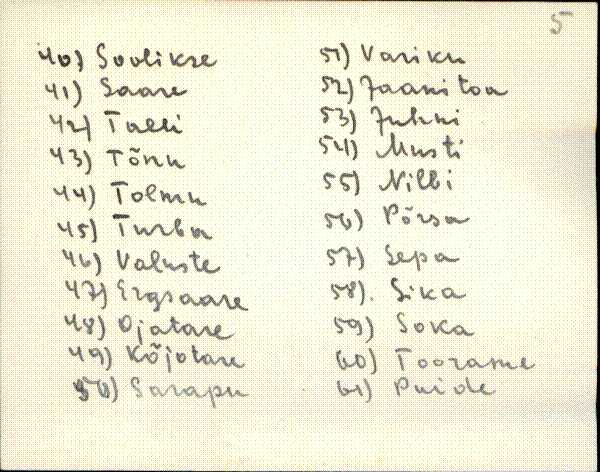 5
40) Soolikse
41) Saare
42) Talli
43) Tõnu
44) Tolmu
45) Turba
46) Valuste
47) Ergsaare
48) Ojatare
49) Kõjotare
50) Sarapu
51) Variku
52) Jaanitoa
53) Juhni
54) Musti
55) Nilbi
56) Põrsa
57) Sepa
58). Sika
59) Soka
60) Toorame
61) Puide